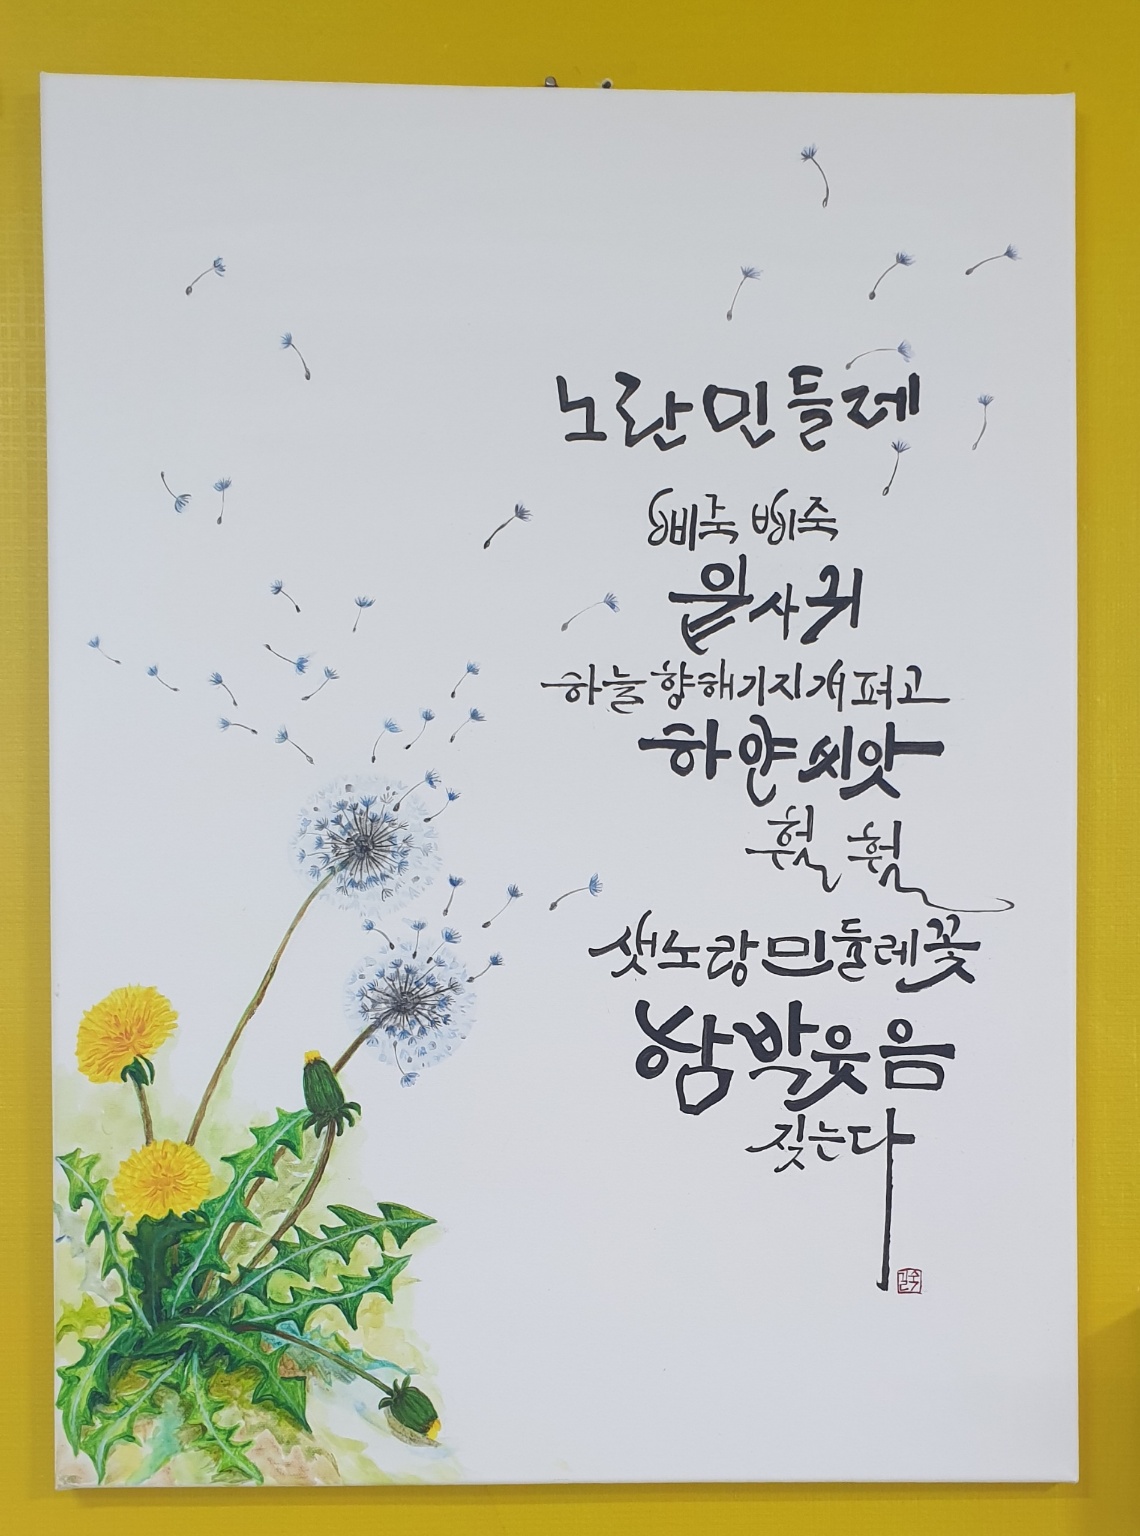 노란 민들레
삐죽 삐죽
잎사귀
하늘 향해 기지개 펴고
하얀 씨앗
훨 훨
샛노랑 민들레꽃
함박웃음
짓는다